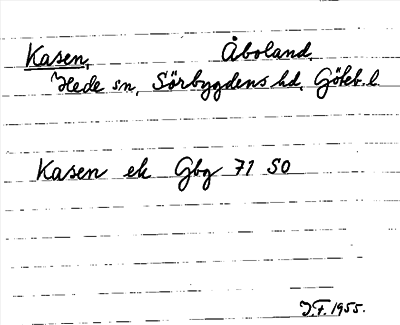 Kasen,   Åboland.
Hede sn, Sörbygdens hd, Göteb. l.
Kasen ek Gbg 71 SO
J.F. 1955.